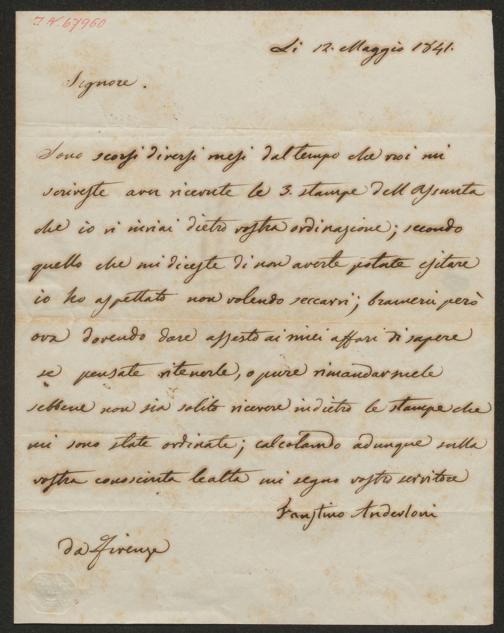 I.N. 67960
Li 12. Maggio 1841.
Signore.
Sono scorsi diversi mesi dal tempo che voi mi
scriveste aver ricevute le 3. stampe dell Assunta
che io vi inviai dietro vostra ordinazione; secondo
quello che mi diceste di non averle potute esitare
io ho aspettato non volendo seccarvi; bramerei però
ora dovendo dare assesto ai miei affari di sapere
se pensate ritenerle, o pure rimandarmele
sebbene non sia solito ricevere indietro le stampe che
mi sono state ordinate; calcolando adunque sulla
vostra conosciuta lealta mi segno vostro servitore
Faustino Anderloni
da Firenze